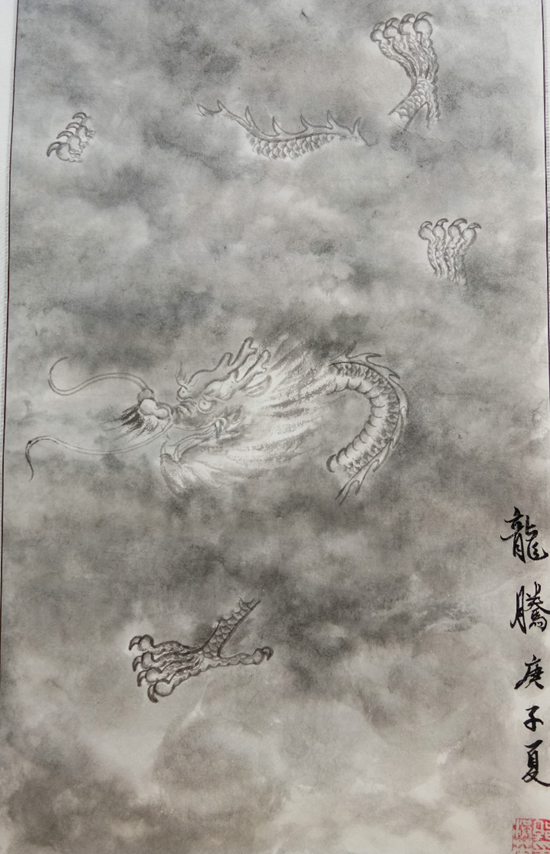 龍騰庚子夏